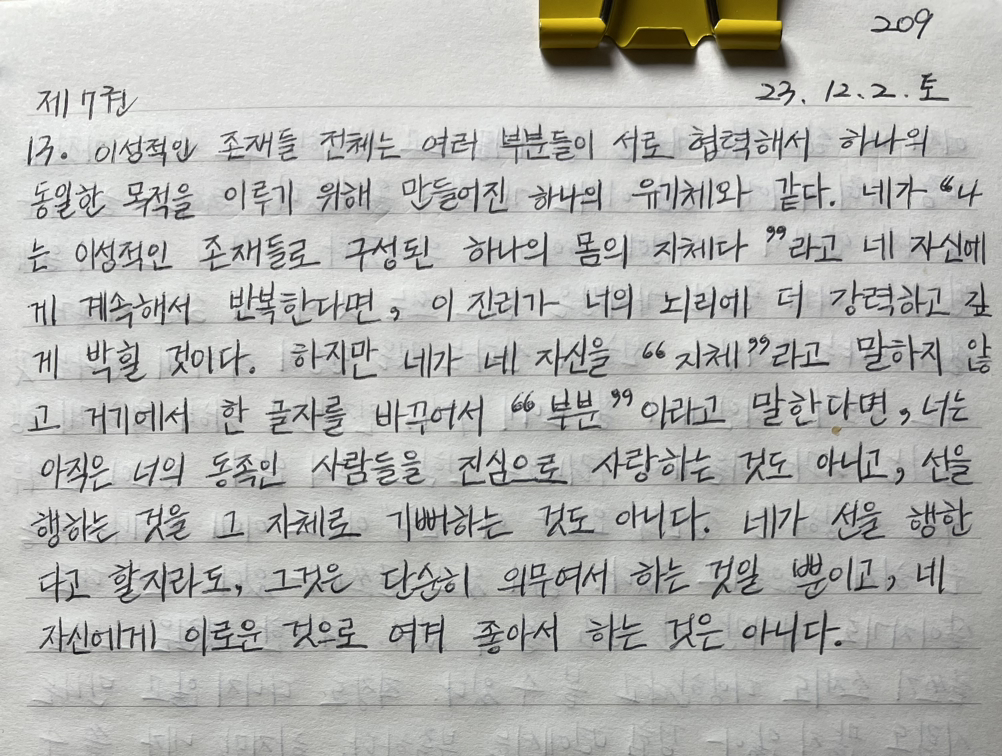 209
제7권 23. 12. 2. 토
13. 이성적인 존재들 전체는 여러 부분들이 서로 협력해서 하나의
동일한 목적을 이루기 위해 만들어진 하나의 유기체와 같다. 네가 “나
는 이성적인 존재들로 구성된 하나의 몸의 지체다”라고 네 자신에
게 계속해서 반복한다면, 이 진리가 너의 뇌리에 더 강력하고 깊
게 박힐 것이다. 하지만 네가 네 자신을 “지체”라고 말하지 않
고 거기에서 한 글자를 바꾸어서 “부분”이라고 말한다면, 너는
아직은 너의 동족인 사람들을 진심으로 사랑하는 것도 아니고, 선을
행하는 것을 그 자체로 기뻐하는 것도 아니다. 네가 선을 행한
다고 할지라도, 그것은 단순히 의무여서 하는 것일 뿐이고, 네
자신에게 이로운 것으로 여겨 좋아서 하는 것은 아니다.